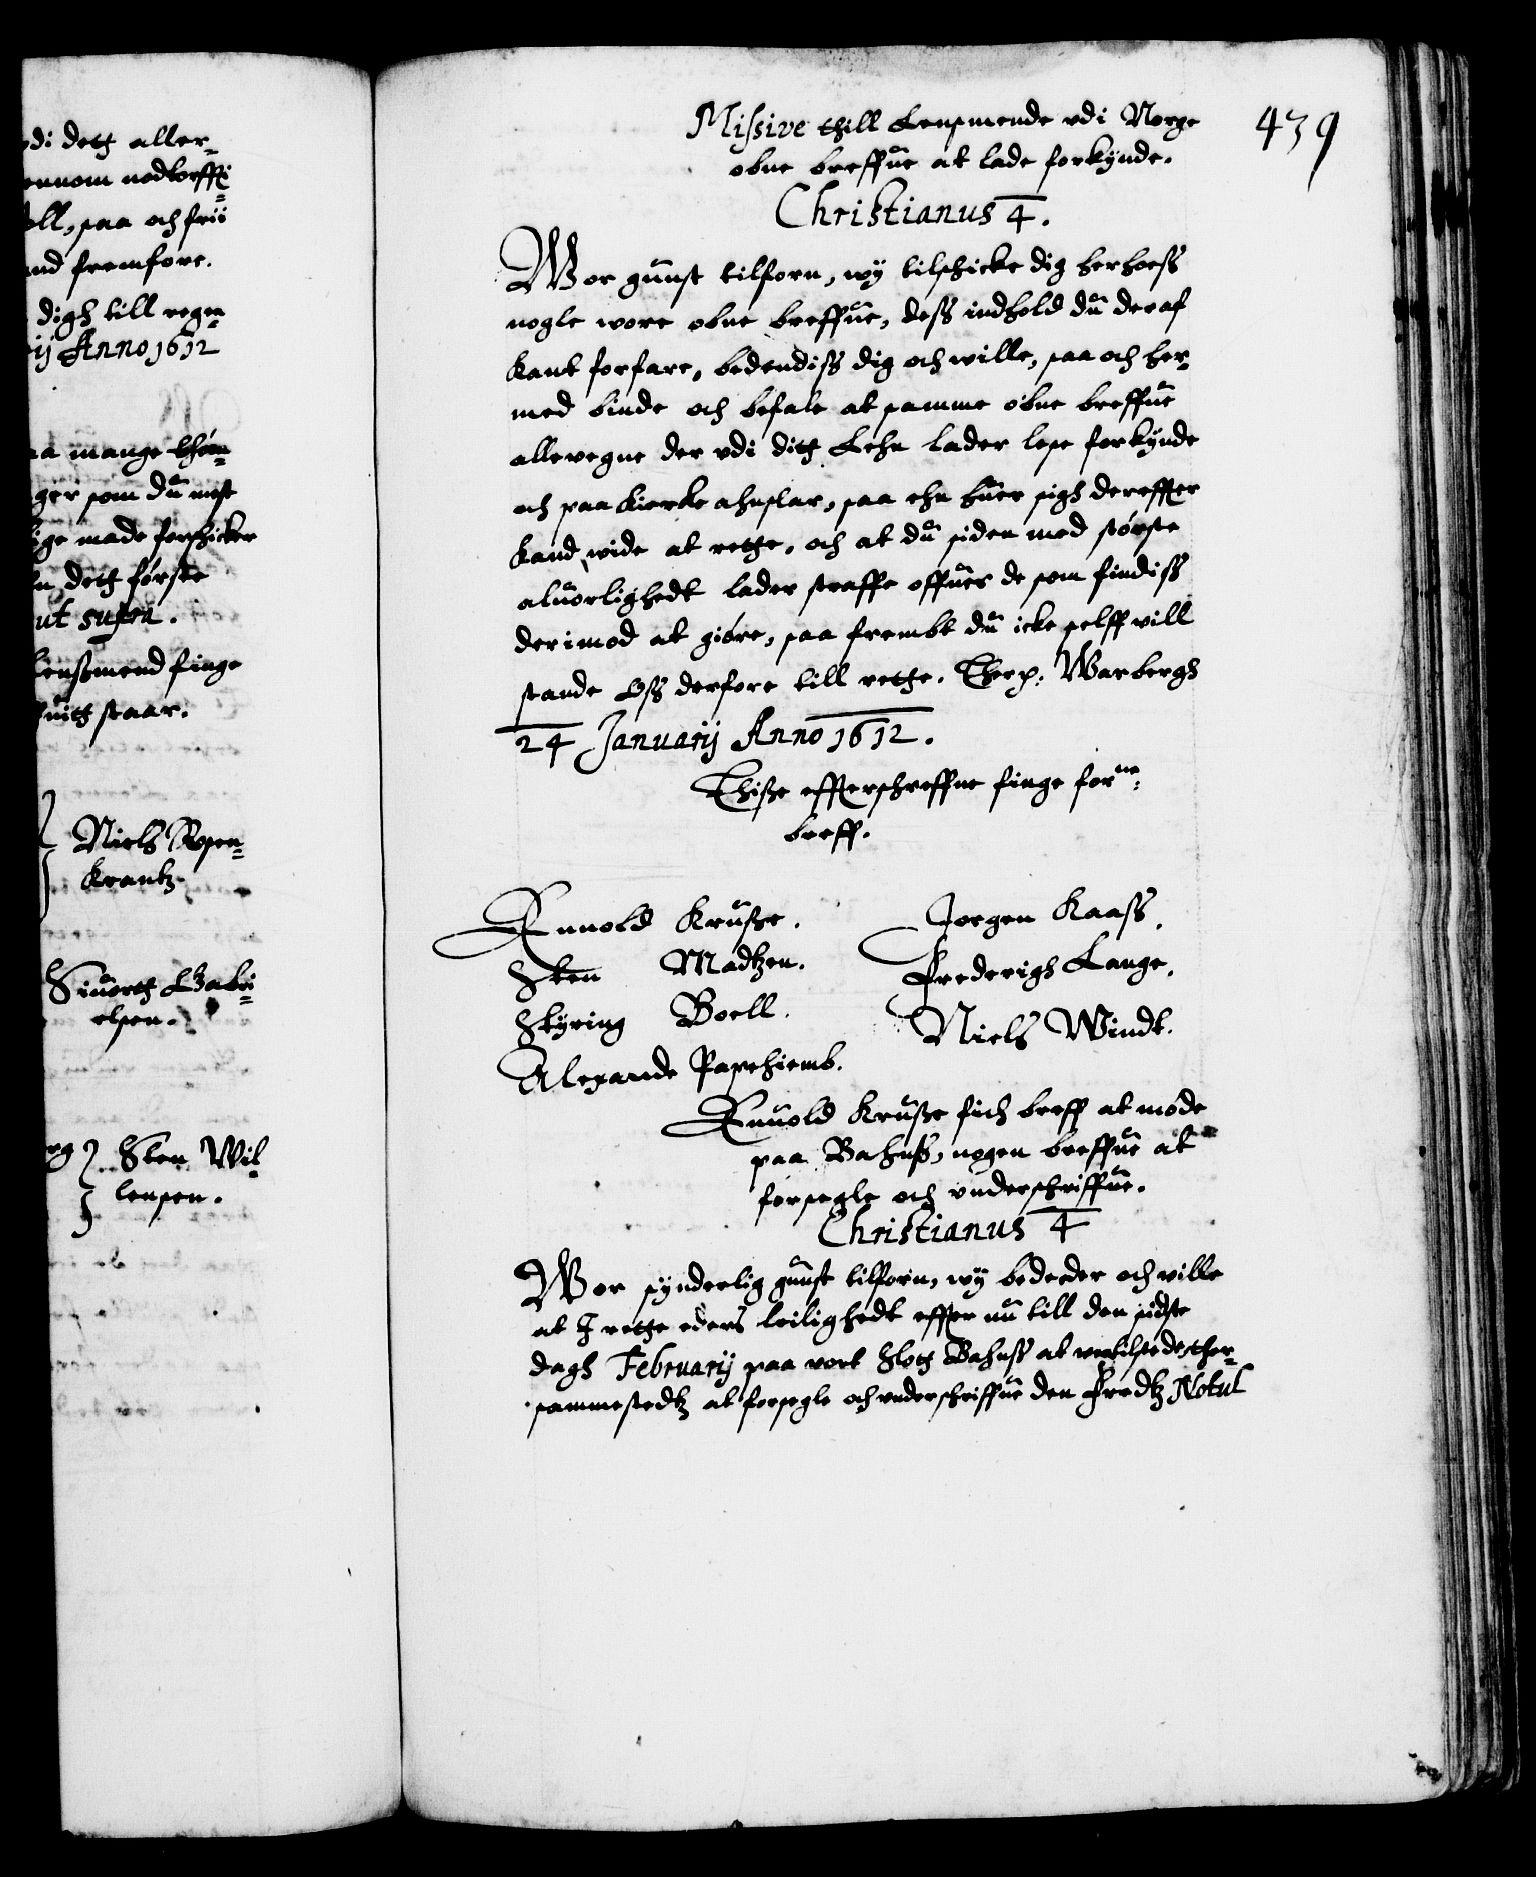 di detg aller¬
ennom nodtorffti¬
oll, saa och frii
and fremfore.
digh till regen¬
ij Anno 1612
aa mange
ger som du mest
ige made forschicker
detg første
ut supra.
Lensmend finge
staar.
Niels Rosen¬
Krantz
Siuortg Gabri¬
elsen.
Sten Wil¬
lensen.
439
Missive thill Lensmende vdi Norge
obne breffue at lade forkynde.
Christianus 4.
Wor gunst tilforn, wy tilschicke dig herhoess
nogle wore obne breffue, dess indhold du deraf
kant forfare, bedendiss dig och wille, saa och her¬
med binde och befale at samme obne breffue
allevegne der vdi ditg Lehn lader lese forkynde
och paa kierke ahnslar, saa ehn huer sigh dereffter
kand wide at rette, och at du siden med største
aluorlighedt lader straffe offuer de som findiss
derimod at giøre, saa frembt du icke selff vill
stande Oss derfore till rette. Therp: Warbergh
24 Januarij Anno 1612.
Thisse effterschreffne finge forne:
breff.
Ennold Krusse. Jorgen Kaass.
Sten Madtzen. Frederigh Lange.
Styring Boell. Niels Windt.
Alexande Papehiemb.
Enuold Krusse fich breff at møde
paa Bahuss, nogen breffue at
forsegle och vnderschriffue.
Christianus 4
Wor synderlig gunst tilforn, wy bedeeder och ville
at I rette eders leilighedt effter nu till den sidste
dagh Februarij paa vort Slotg Bahuss at tilstede ther¬
sammestedtz at forsegle och vnderschriffue den Fredtz Notul